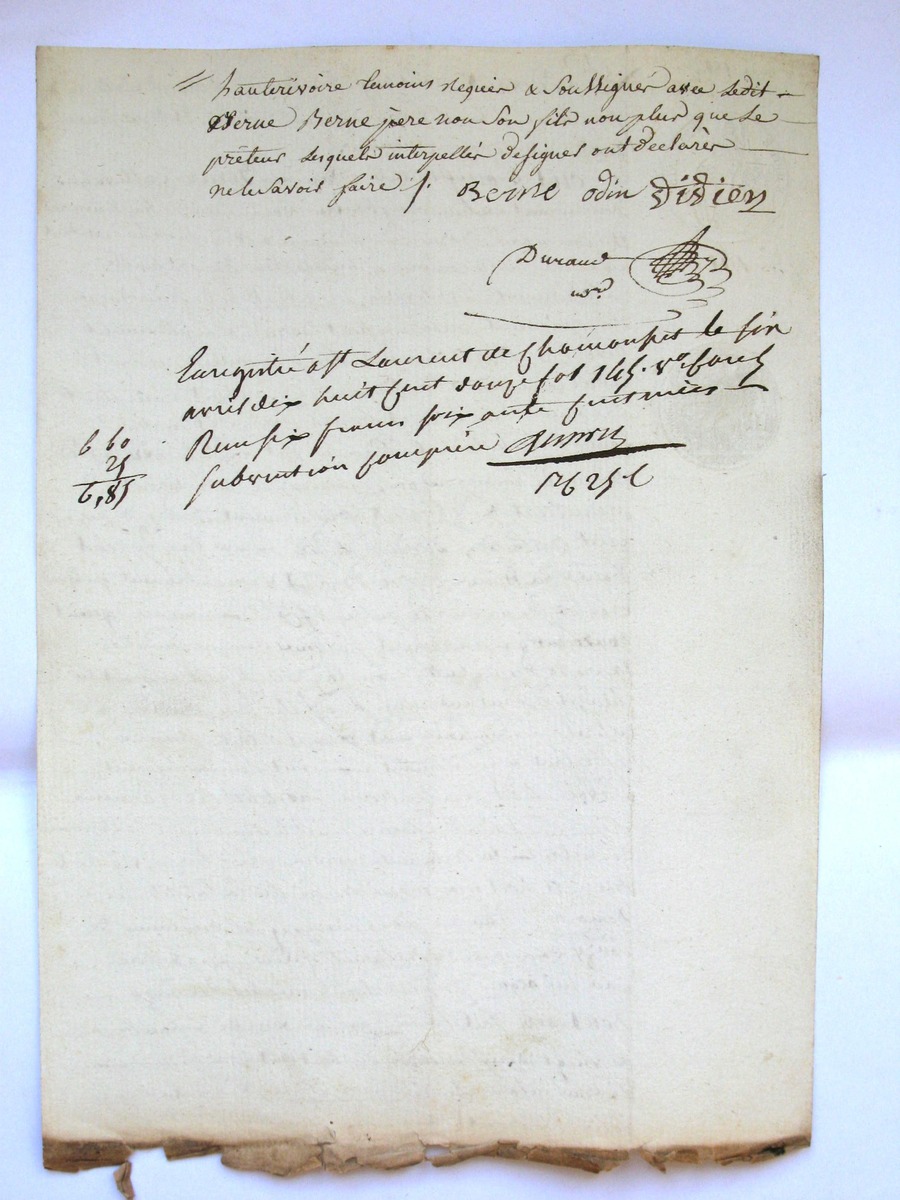 hauterivoire temoins requis & soussignés avec ledit
Berne Berne pere non son fils non plus que le
prêteur lesquels interpellés de signer ont declarés
ne le savoir faire /. Berne odin Didier
Durand
nre
Enregistré a St Laurent de Chamousset le six
avril dix huit cent douze fol 145. vo
Reçu six francs soixante centimes
subvention comprise
6 60
25
6,85